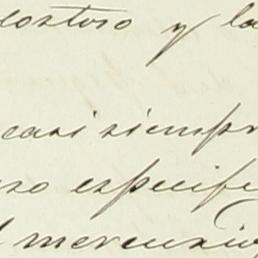 costoso y la
casi siempr
so especific
l mercurio